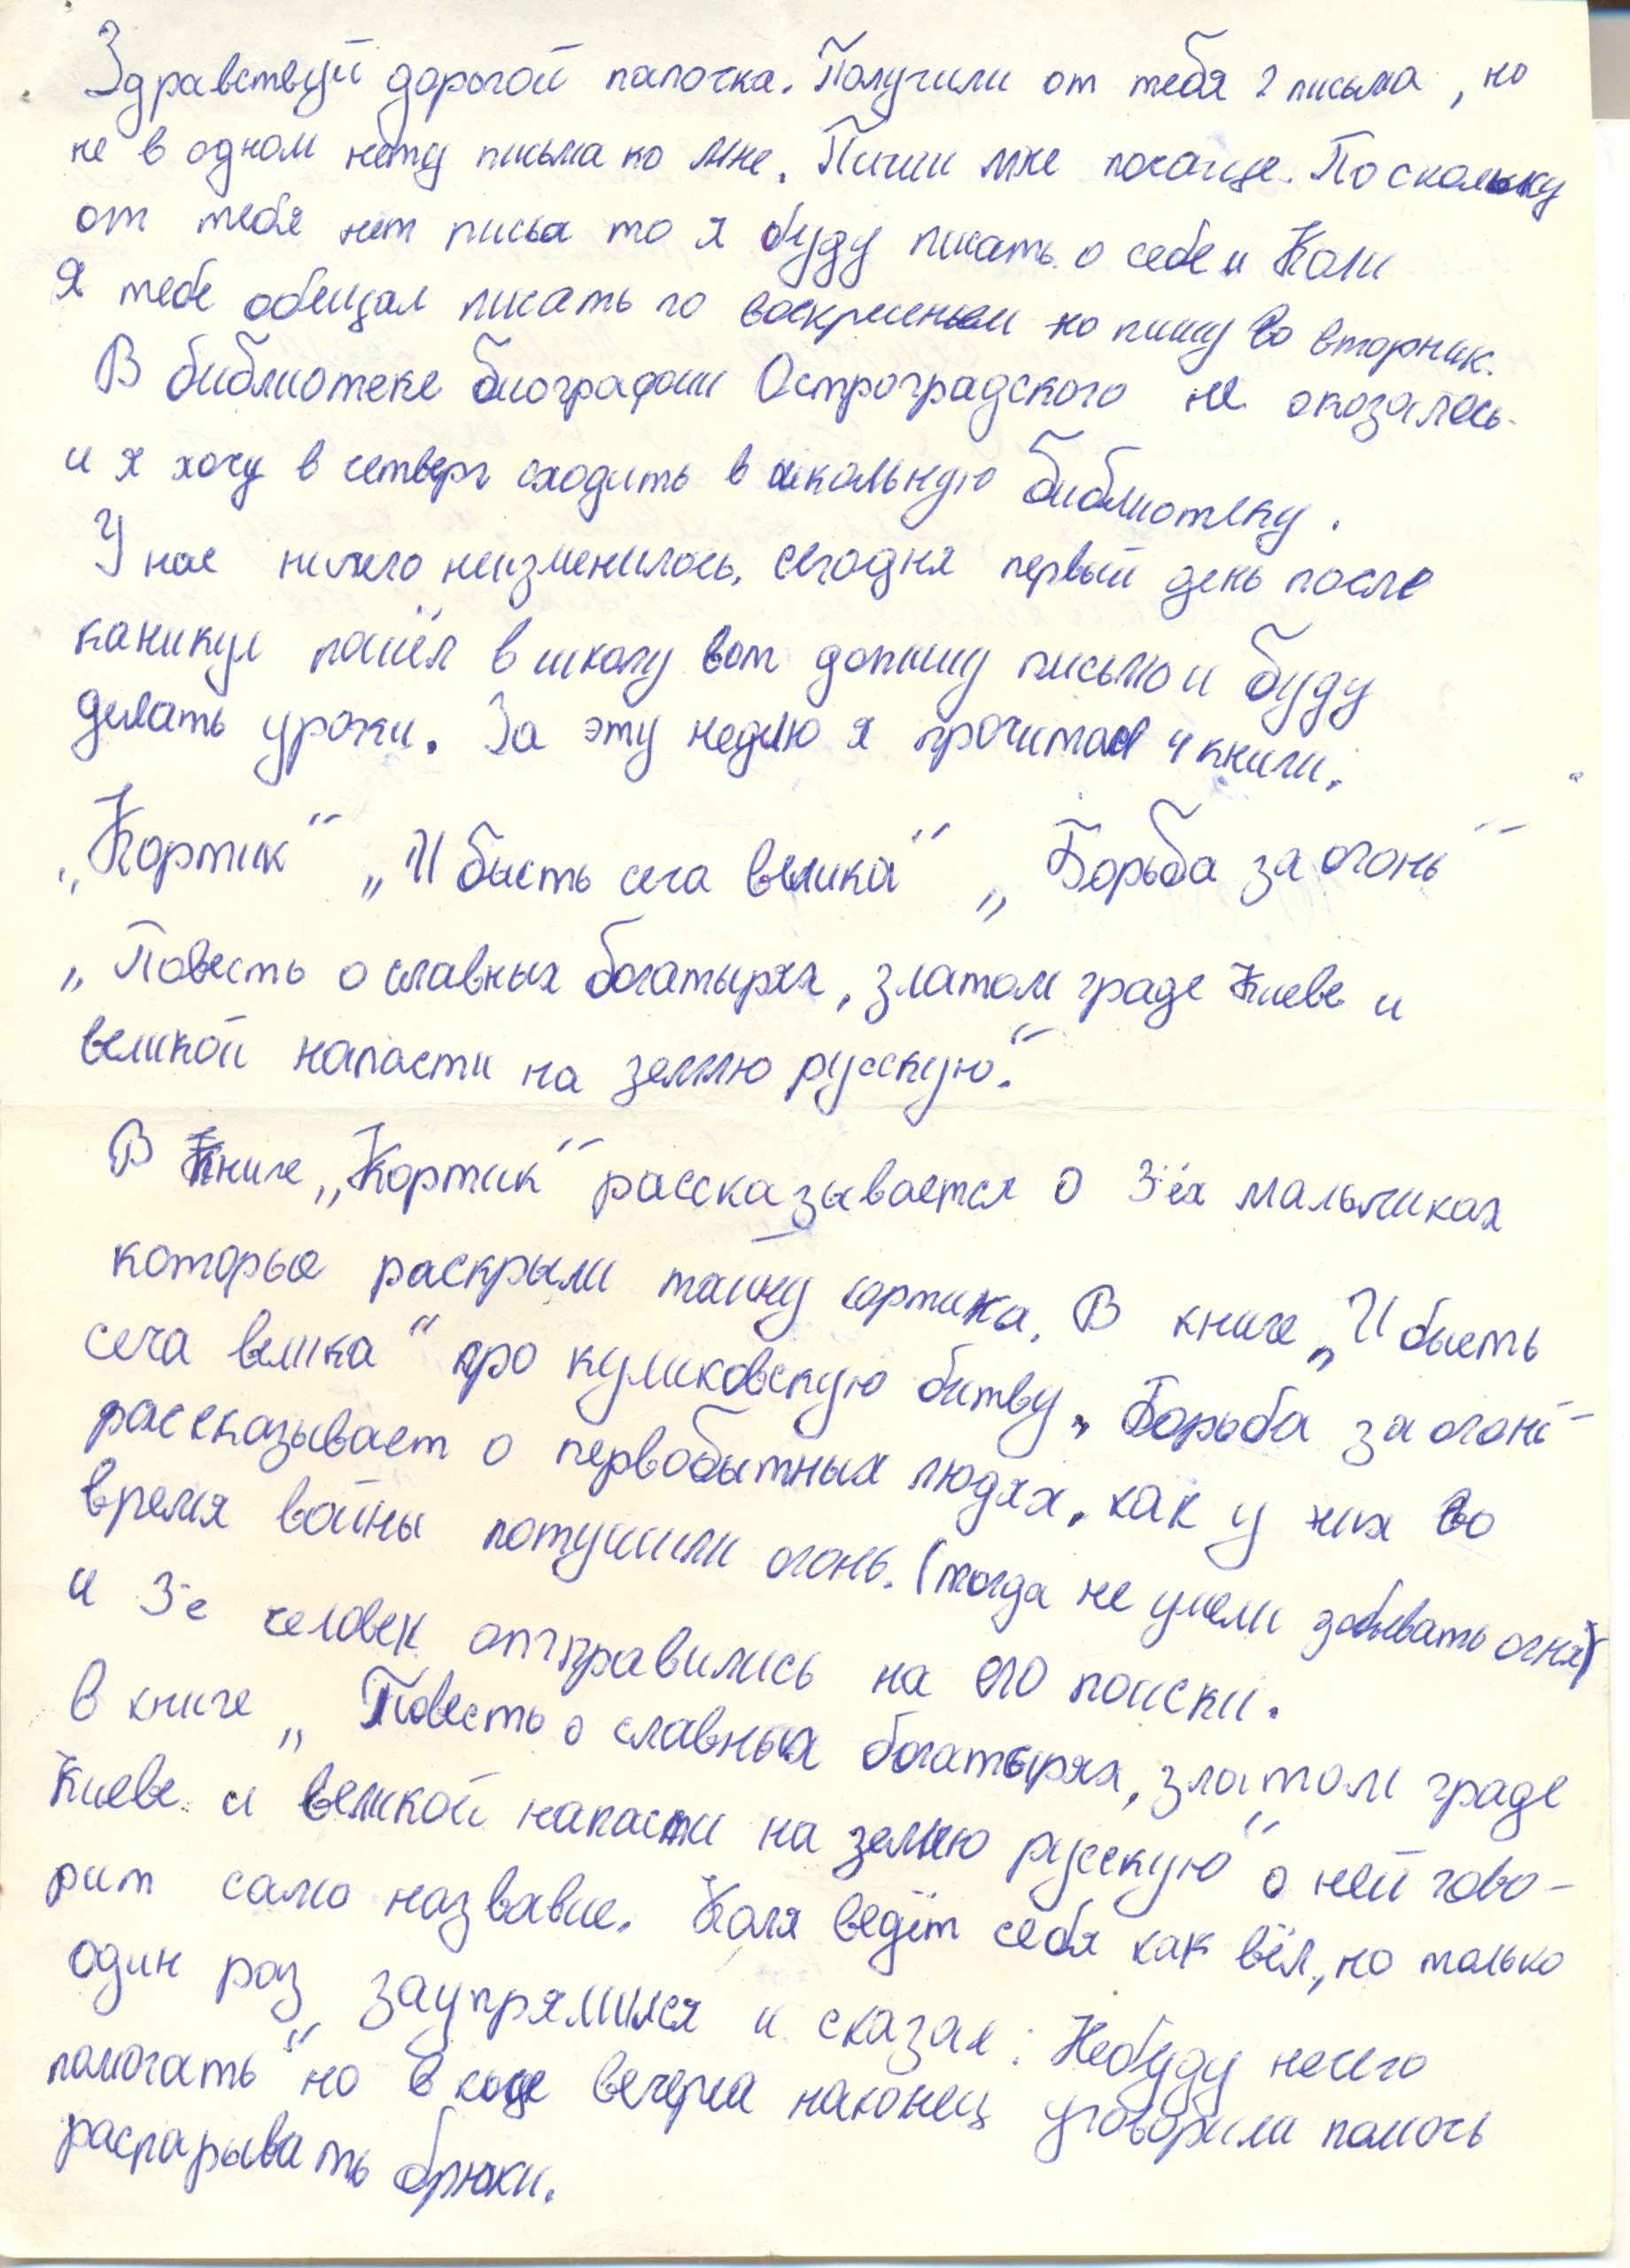 Здравствуй дорогой папочка. Получили от тебя 2 письма, но
не в одном нету письма ко мне. Пиши мне почаще. Поскольку
от тебя нет письа то я буду писать о себе и Коли
Я тебе обещал писать по воскресеньем но пишу во вторник.
В библиотеке биографии Остроградского не оказалось
и я хочу в четверг сходить в школьную библиотеку.
У нас ничего неизменилось, сегодня первый день после
каникул пошёл в школу вот допишу письмо и буду
делать уроки. За эту неделю я прочитал 4 книги.
„Кортик“ „И бысть сеча велика“ „Борьба за огонь“
„Повесть о славных богатырях, златом граде Киеве и
великой напасти на землю русскую.“
В Книге „Кортик“ рассказывается о 3-ёх мальчиках
которые раскрыли тайну кортика. В книге „И бысть
сеча велика“ про куликовскую битву. „Борьба за огонь“
рассказывает о первобытных людях, как у них во
время войны потушили огонь. (тогда не умели добывать огня)
и 3-е человек отправились на его поиски.
В книге „Повесть о славных богатырях, златом граде
Киеве и великой напасти на землю русскую“ о ней гово-
рит само назвавие. Коля ведёт себя как вёл, но только
один раз заупрямился и сказал: Небуду нечего
помогать“ но в коце вечера наконец уговорили помочь
распарывать брюки.